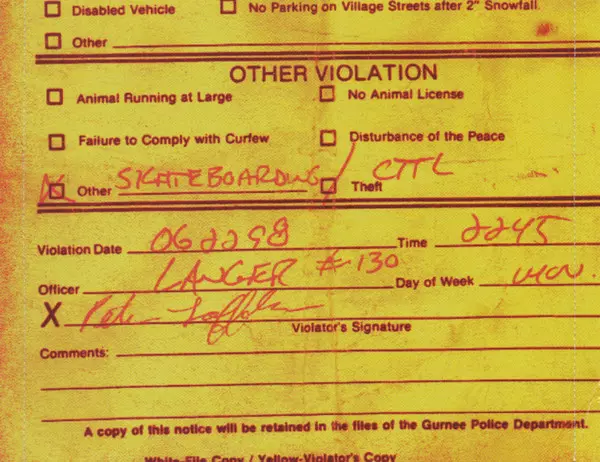 Disabled Vehicle No Parking on Village Streets after 2" Snowfall
Other
OTHER VIOLATION
Animal Running at Large No Animal License
Failure to Comply with Curfew Disturbance of the Peace
Other SKATEBOARDING / CTTL Theft
Violation Date 062298 Time 2245
Officer LANGER #130 Day of Week MON.
X
Violator's Signature
Comments:
A copy of this notice will be retained in the files of the Gurnee Police Department.
White-File Copy / Yellow-Violator's Copy